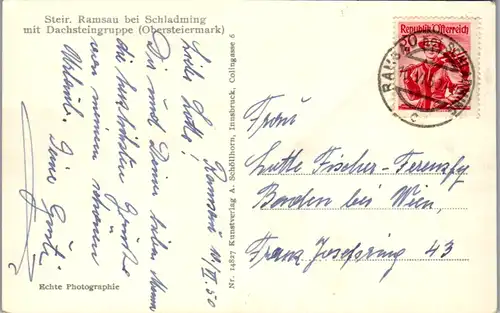 Steir. Ramsau bei Schladming
mit Dachsteingruppe (Obersteiermark)
Ramsau 11/VII. 50
Liebe Lotte!
Dir und Deinem lieben Mann
die herzlichsten Grüße
von meinem schönen
Urlaub. Deine Gusti
Echte Photographie
Nr. 14827 Kunstverlag A. Schöllhorn, Innsbruck, Colingasse 6
Republik Österreich
RAMSAU BEI SCHLADMING
Frau
Lotte Fischer-Ferenzfy
Baden bei Wien,
Franz Josefsring 43